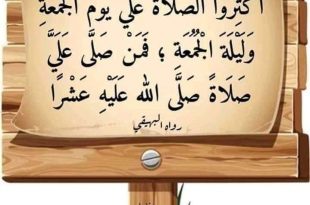 أكثروا الصلاة علي يوم الجمعة
وَلَيْلَةَ الْجُمُعَةِ ؛ فَمَنْ صَلَّى عَلَيَّ
صَلَاةً صَلَّى الله عَلَيْهِ عَشْرًا
رواه البيهقي